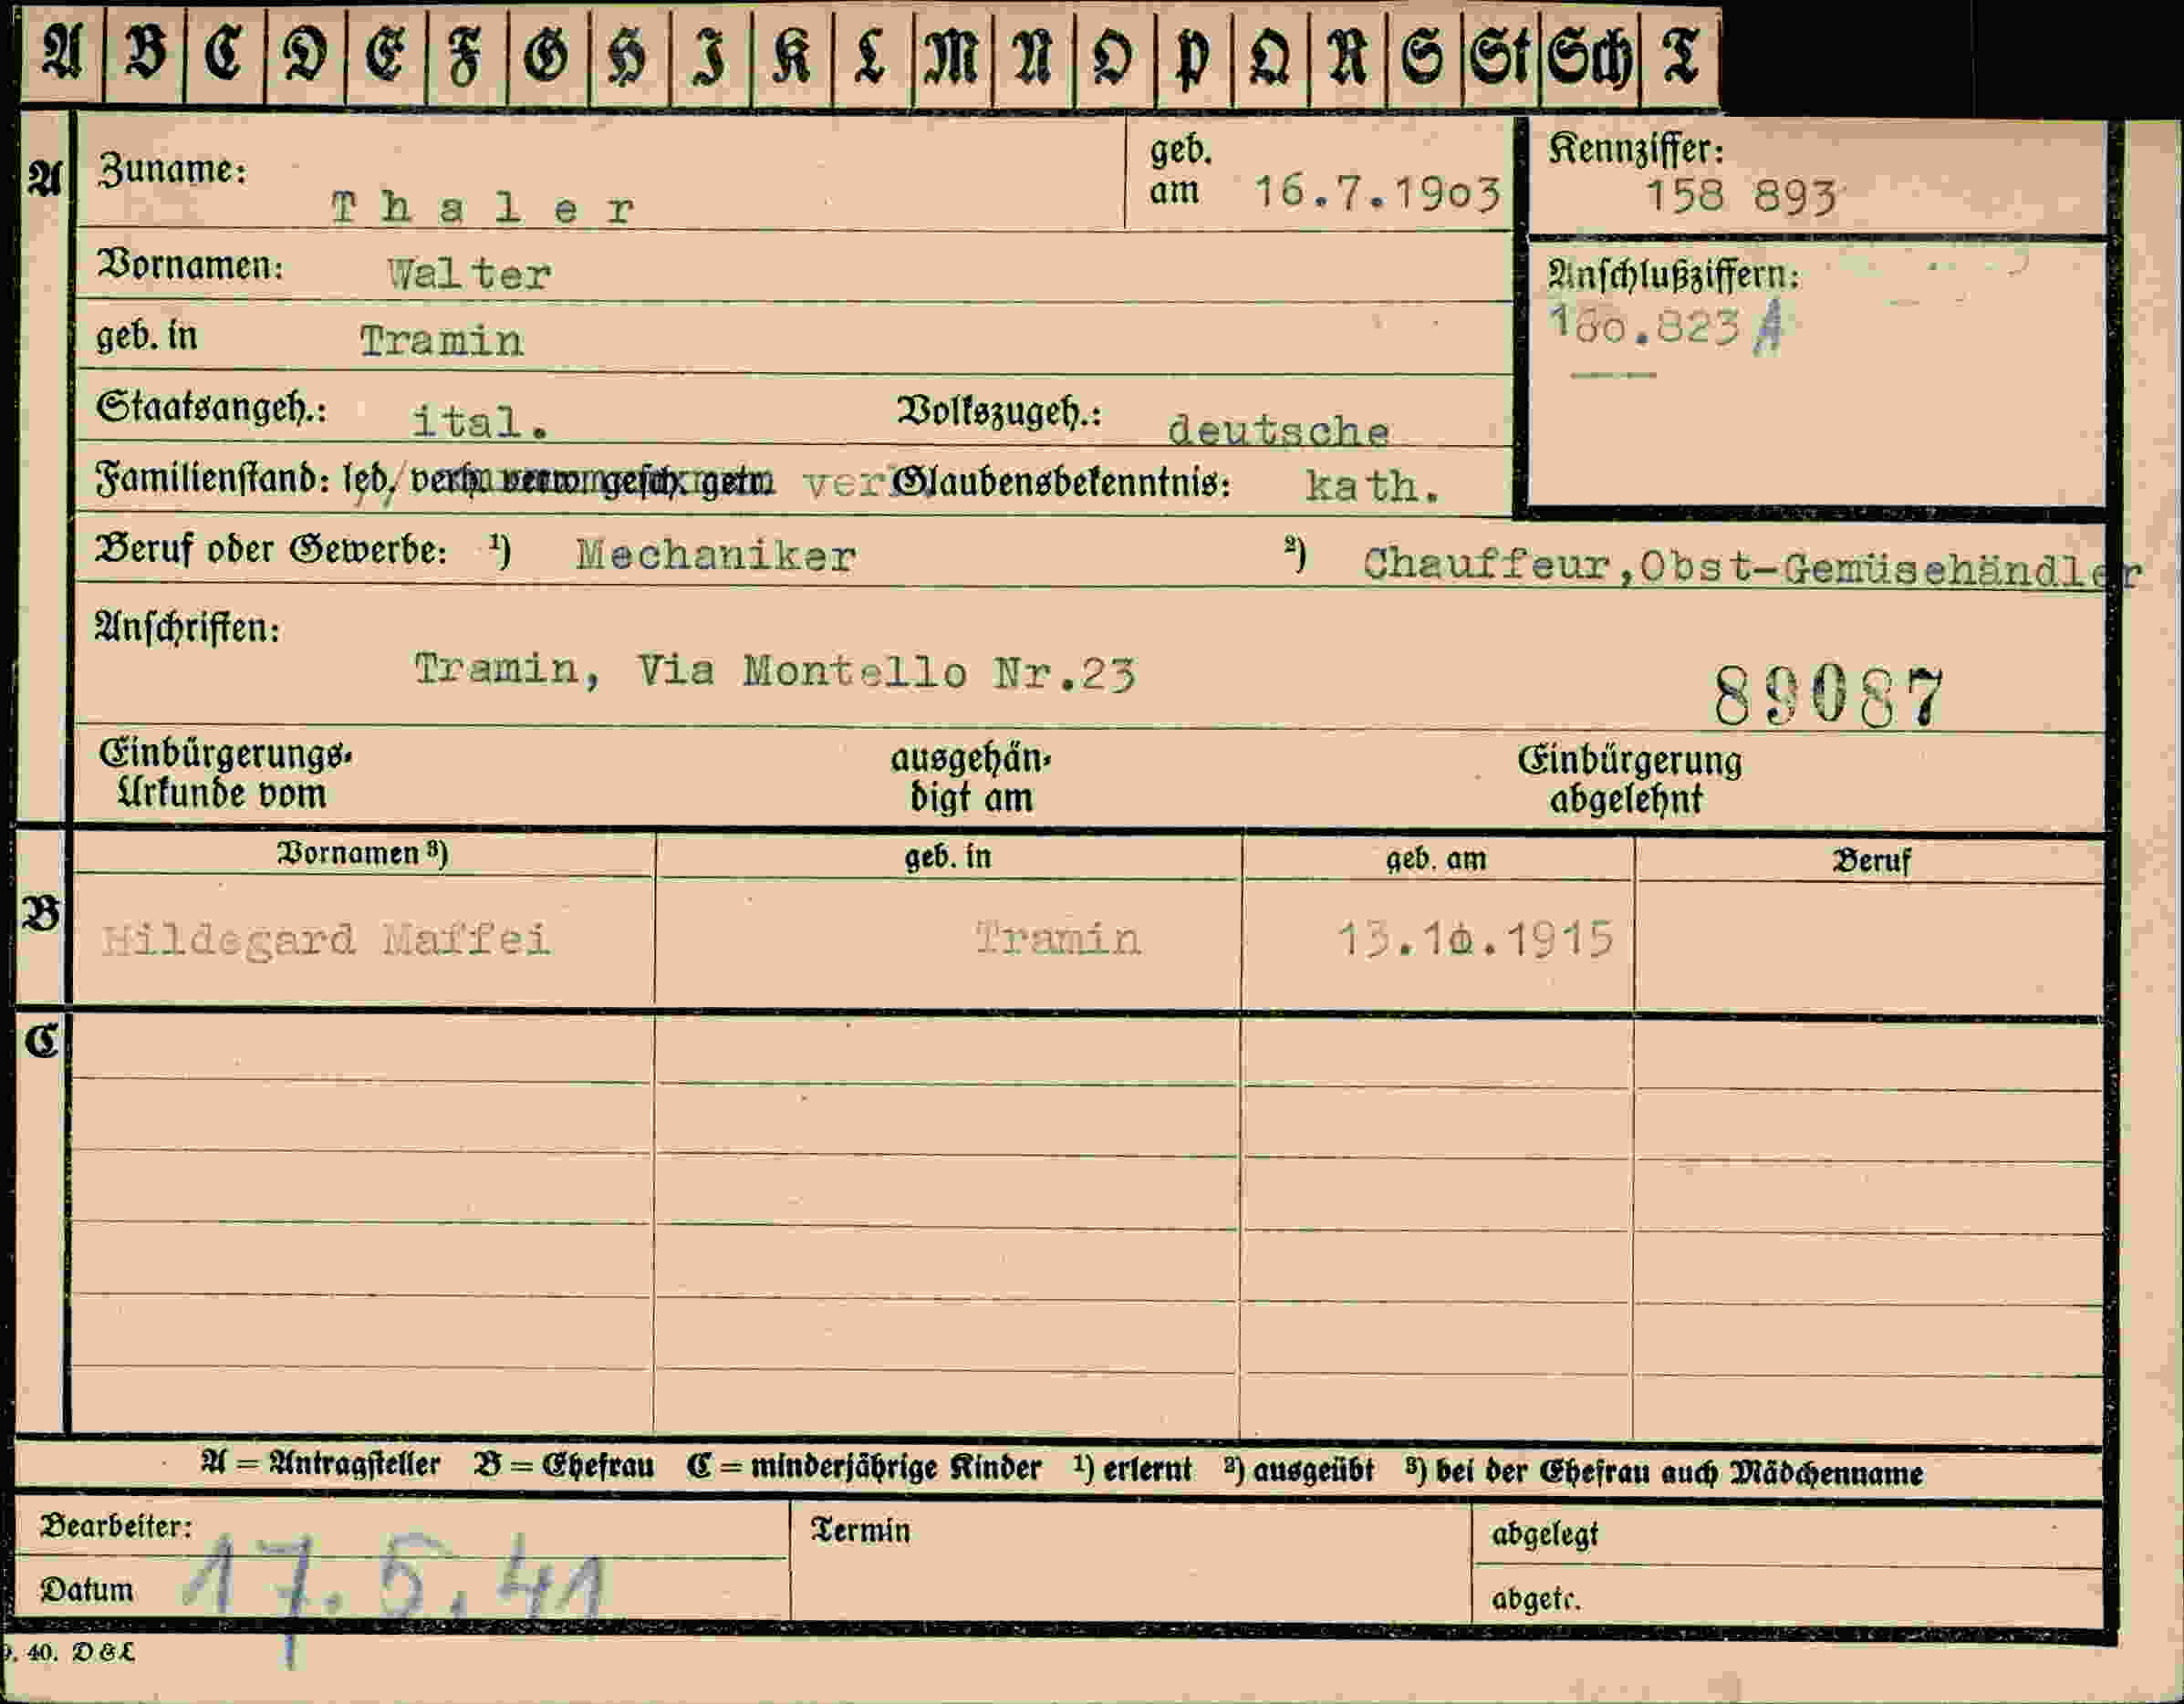 A B C D E F G H I K L M N O P Q R S St Sch T
A Zuname: Thaler geb. am 16.7.19o3 Kennziffer: 158 893
Vornamen: Walter Anschlußziffern:
geb. in Tramin .823 A
Staatsangeh.: ital. Volkszugeh.: deutsche
Familienstand: led. verh. verw. gesch. getr. ver Glaubensbekenntnis: kath.
Beruf oder Gewerbe: 1) Mechaniker 2) Chauffeur,Obst-Gemüsehändler
Anschriften:
Tramin, Via Montello Nr.23 89087
Einbürgerungs-Urkunde vom ausgehän-digt am Einbürgerung abgelehnt
Vornamen 3) geb. in geb. am Beruf
B Hildegard Maffei Tramin 13.10.1915
C
A = Antragsteller B = Ehefrau C = minderjährige Kinder 1) erlernt 2) ausgeübt 3) bei der Ehefrau auch Mädchenname
Bearbeiter: Termin abgelegt
Datum 17.5.41 abgetr.
40. D&L